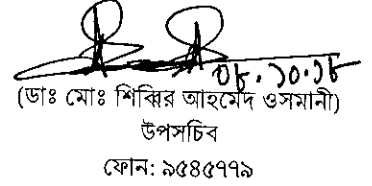 ০৮.১০.১৮
(ডাঃ মোঃ শিব্বির আহমেদ ওসমানী)
উপসচিব
ফোন: ৯৫৪৫৭৭৯